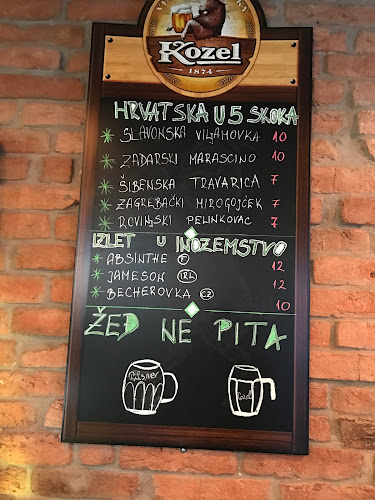 Kozel
1874
HRVATSKA U 5 SKOKA
* SLAVONSKA VILJAMOVKA 10
* ZADARSKI MARASCINO 10
* ŠIBENSKA TRAVARICA 7
* ZAGREBAČKI MIROGOJČEK 7
* ROVINJSKI PELINKOVAC 7
IZLET U INOZEMSTVO
* ABSINTHE F 12
* JAMESON IRL 12
* BECHEROVKA CZ 10
ŽED NE PITA
Pilsner
Kozel